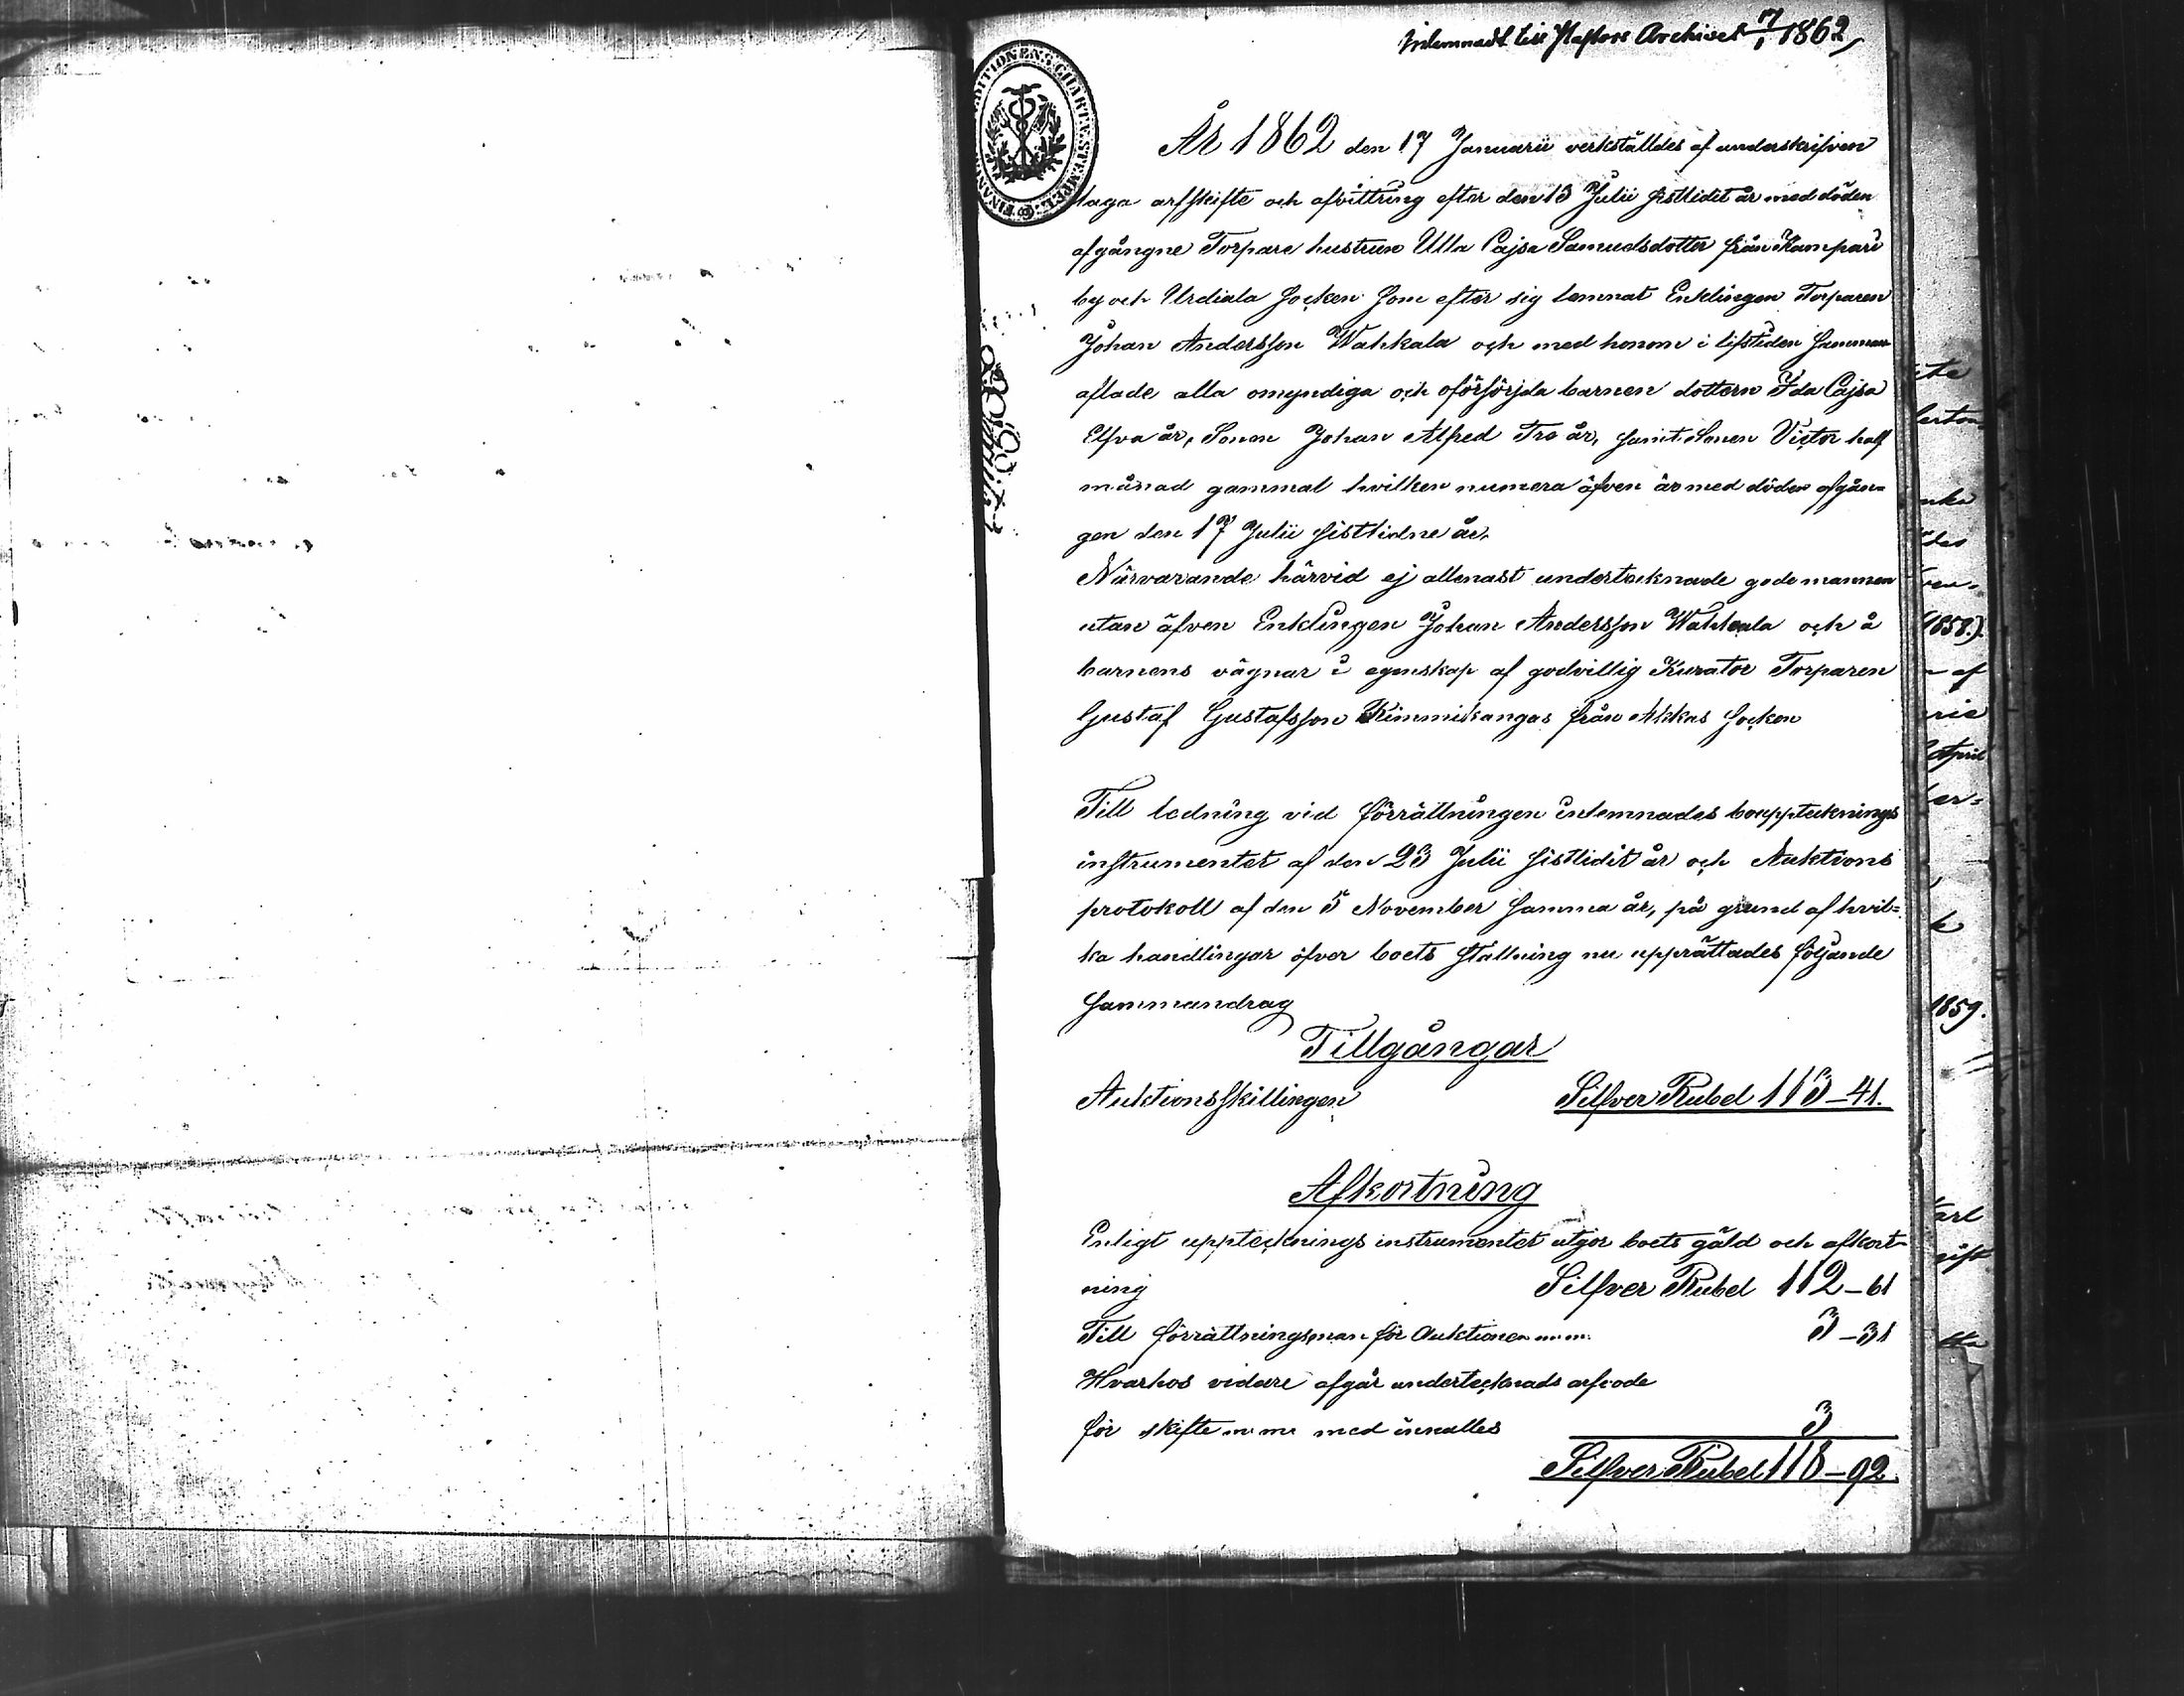 Inlemnadt till Pastors Archivet 7/1 1862,
År 1862 den 17 Januarii verkställdes af underskrifven
laga arfskifte och afvittring efter den 13 Julii sistlidit år med döden
afgångne Torpare hustrun Ulla Cajsa Samuelsdotter från Kampari
by och Urdiala Socken som efter sig lemnat Enklingen Torparen
Johan Andersson Wahkala och med honom i lifstiden samman
aflade alla omyndiga och oförsörjda barnen dottern Ida Cajsa
Elfva år, Sonen Johan Alfred Tre år, samt Sonen Victor half
månad gammal hvilken numera äfven är med döden afgån=
gen den 17 Julii sistlidne år.
Närvarande härvid ej allenast undertecknade gode mannen
utan äfven Enklingen Johan Andersson Wahkala och å
barnens vägnar i egenskap af godvillig Kurator Torparen
Gustaf Gustafsson Kimmikangas från Akkas Socken
Till ledning vid förrättningen inlemnades bouppteknings
instrumentet af den 23 Julii sistlidit år och Auktions
protokoll af den 5 November samma år, på grund af hvil=
ka handlingar öfver boets ställning nu upprättades följande
Sammandrag
Tillgångar
Auktionsskillingen Silfver Rubel 113-41.
Afkortning
Enligt upptecknings instrumentet utgör boets gäld och afkort=
ning Silfver Rubel 112-61
Till förrättningsman för Auktionen m.m. 3-31
Hvarhos vidare afgår undertecknads arfvode
för skifte m m med inalles 3
Silfver Rubel 118-92.
ite
(1858.)
af
April
1859.